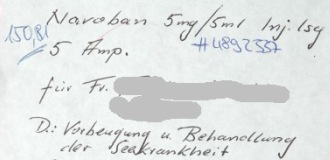 Navoban 5mg/5ml Inj. lsg
150,81
5 Amp.
#4892557
für Fr.
D.: Vorbeugung u. Behandlung
der Seekrankheit